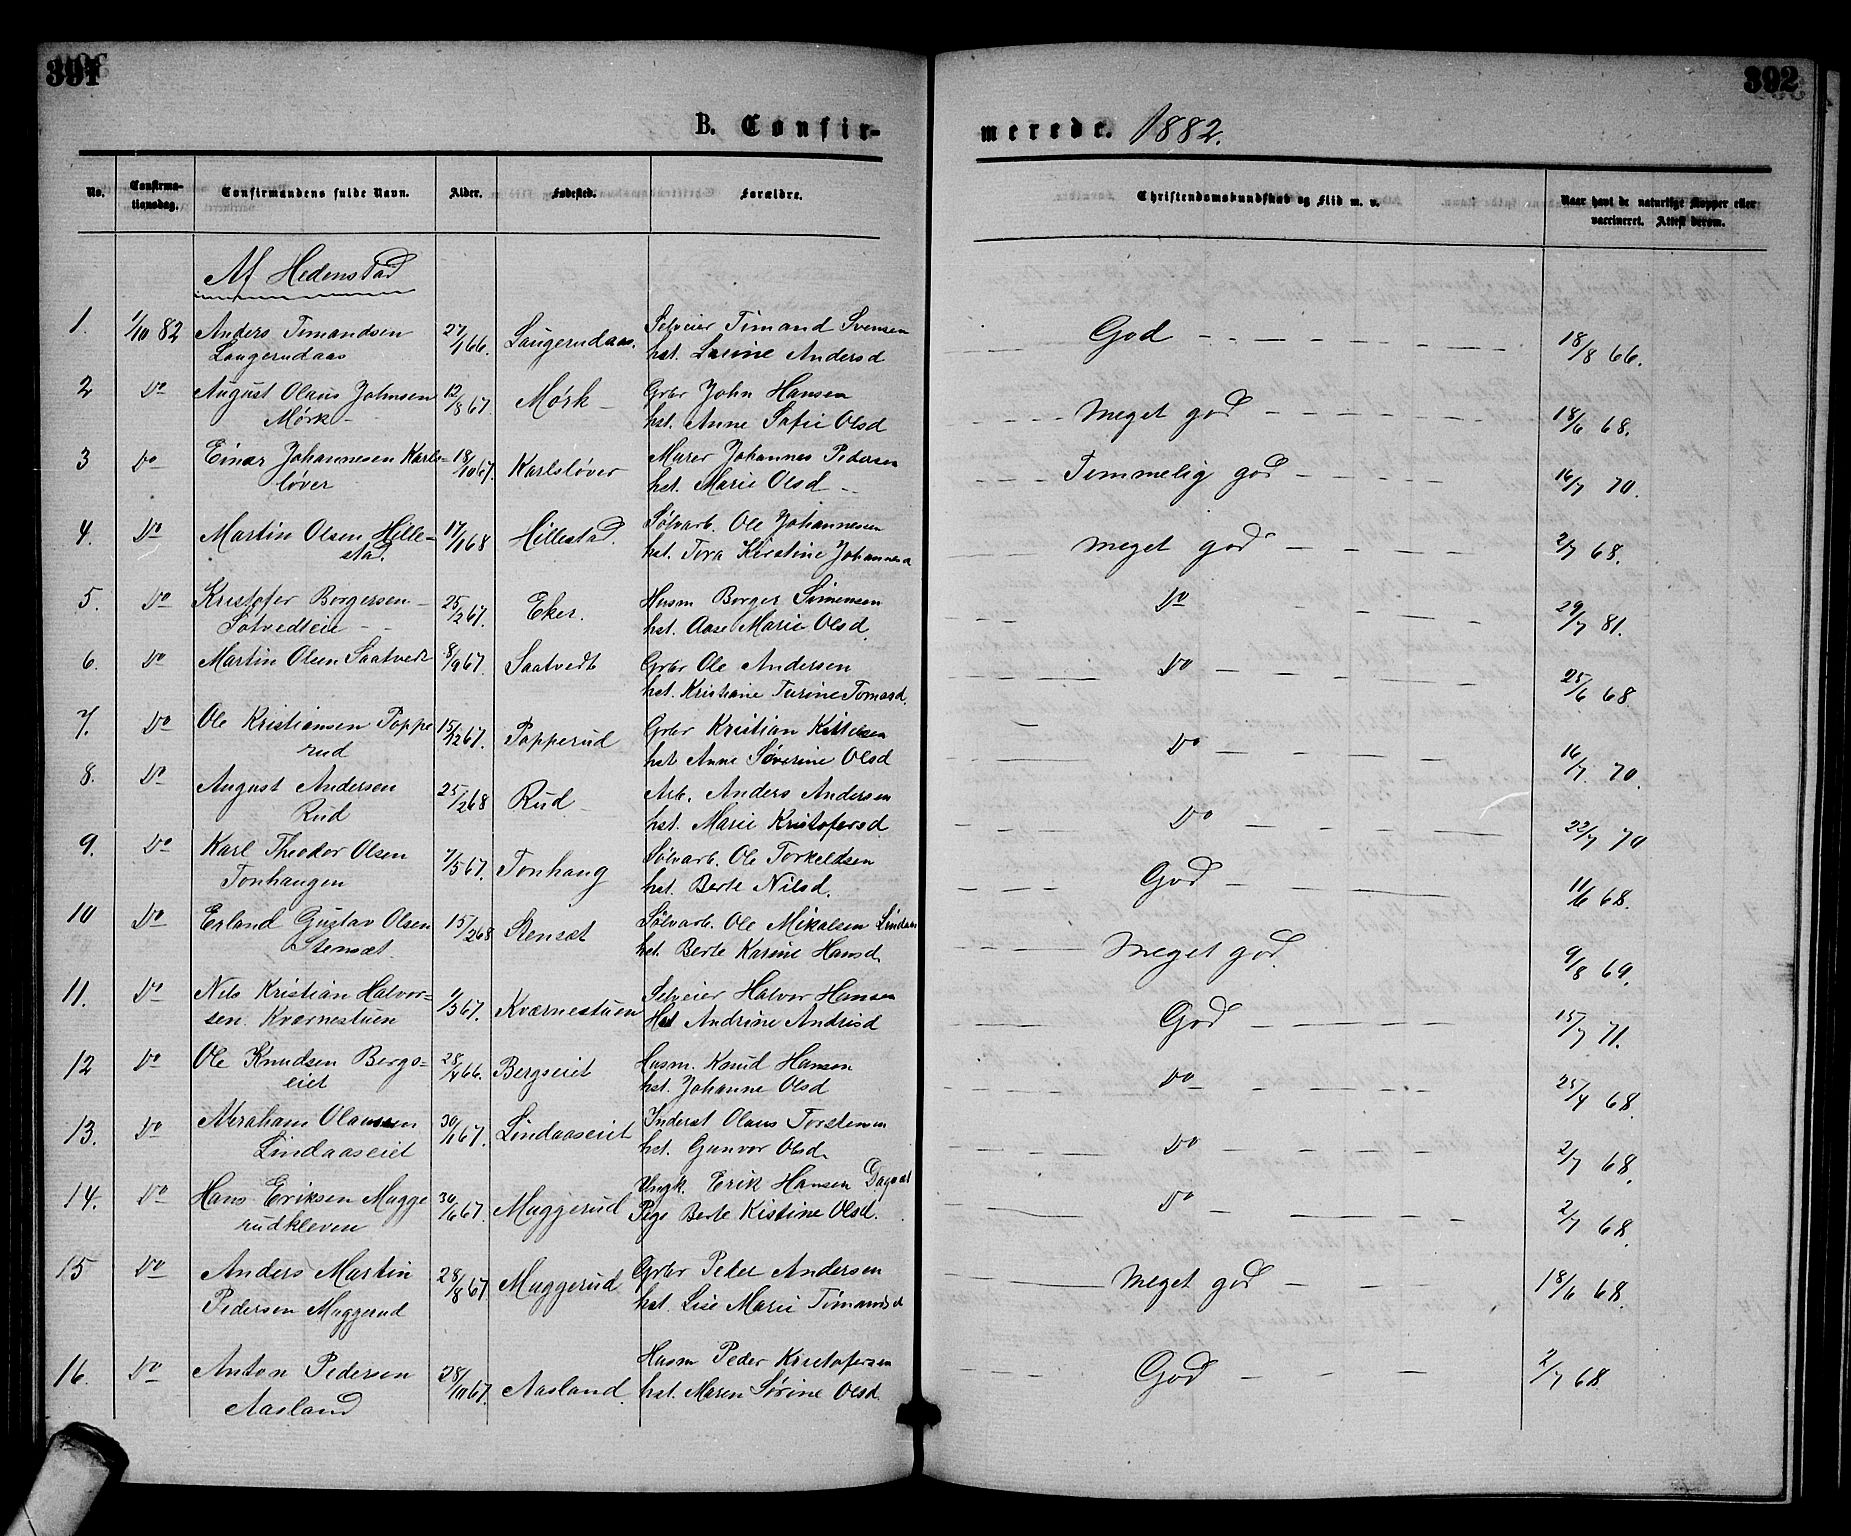 391
392
B. Confir-
merede. 1882.
No.
Confirma-
tionsdag.
Confirmandens fulde Navn.
Alder.
Fødested.
Forældre.
Christendomskundskab og Flid m. v.
Naar havt de naturlige Kopper eller
vaccineret. Attest derom.
Af Hedenstad
1. 1/10 82 Anders Timandsen 27/1 66. Laugerudaas. Selveier Timand Svensen God 18/8 66.
Laugerudaas hst. Laurine Andersd
2 Do August Olaus Johnsen 12/8 67. Mørk Grbr John Hansen Meget god 18/6 68.
Mørk hst. Anne Sofie Olsd
3 Do Einar Johannesen Karls- 18/10 67. Karlsløver Murer Johannes Pedersen Temmelig god 16/7 70.
løver hst. Marie Olsd
4. Do Martin Olsen Hille- 17/1 68 Hillestad. Sølvarb. Ole Johannesen Meget god 2/7 68.
stad. hst. Tora Kirstine Johannesd
5. Do Kristofer Borgersen 25/2 67. Eker. Husm Borger Simensen Do 29/7 81.
Sotvedteie hst. Aase Marie Olsd.
6. Do Martin Olsen Saatvedt 8/9 67. Saatvedt Grbr Ole Andersen Do 25/6 68
hst. Kristiane Turine Tomasd.
7. Do Ole Kristiansen Poppe 15/12 67. Popperud Grbr Kristian Kittelsen Do 16/7. 70.
rud hst Anne Søverine Olsd
8. Do August Andersen 25/2 68 Rud Arb. Anders Andersen Do 22/7 70
Rud hst. Marie Kristofersd
9. Do Karl Theodor Olsen 7/5 67. Tonhaug Sølvarb. Ole Torkeldsen God 11/6 68.
Tonhaugen hst. Berte Nilsd.
10 Do Erland Gustav Olsen 15/2 68 Stensæt Sølvarb. Ole Mikalsen Lindaas Meget god. 9/8 69.
Stensæt. hst. Berte Karine Hansd.
11. Do Nils Kristian Halvor- 1/3 67. Kværnestuen Selveier Halvor Hansen God 15/7 71.
sen. Kværnestuen Hst Andrine Andrisd
12 Do Ole Knudsen Bergs- 28/4 66. Bergseiet Husm. Knud Hansen Do 25/4 68.
eiet hst. Johanne Olsd
13. Do Abraham Olaussen 30/1 67. Lindaaseiet Inderst Olaus Torstensen Do 2/7 68.
Lindaaseiet hst. Gunvor Olsd.
14. Do Hans Eriksen Mugge 30/6 67. Muggerud Ungk. Erik Hansen Do 2/7 68.
rudkleven Pige Berte Kistine Olsd.
15 Do Anders Martin 28/8 67 Muggerud Grbr Peder Andersen Meget god 18/6 68.
Pedersen Muggerud hst. Lise Marie Timandsd
16. Do Anton Pedersen 28/10 67. Aasland. Husm Peder Kristofersen God 2/7 68
Aasland hst. Maren Sørine Olsd.